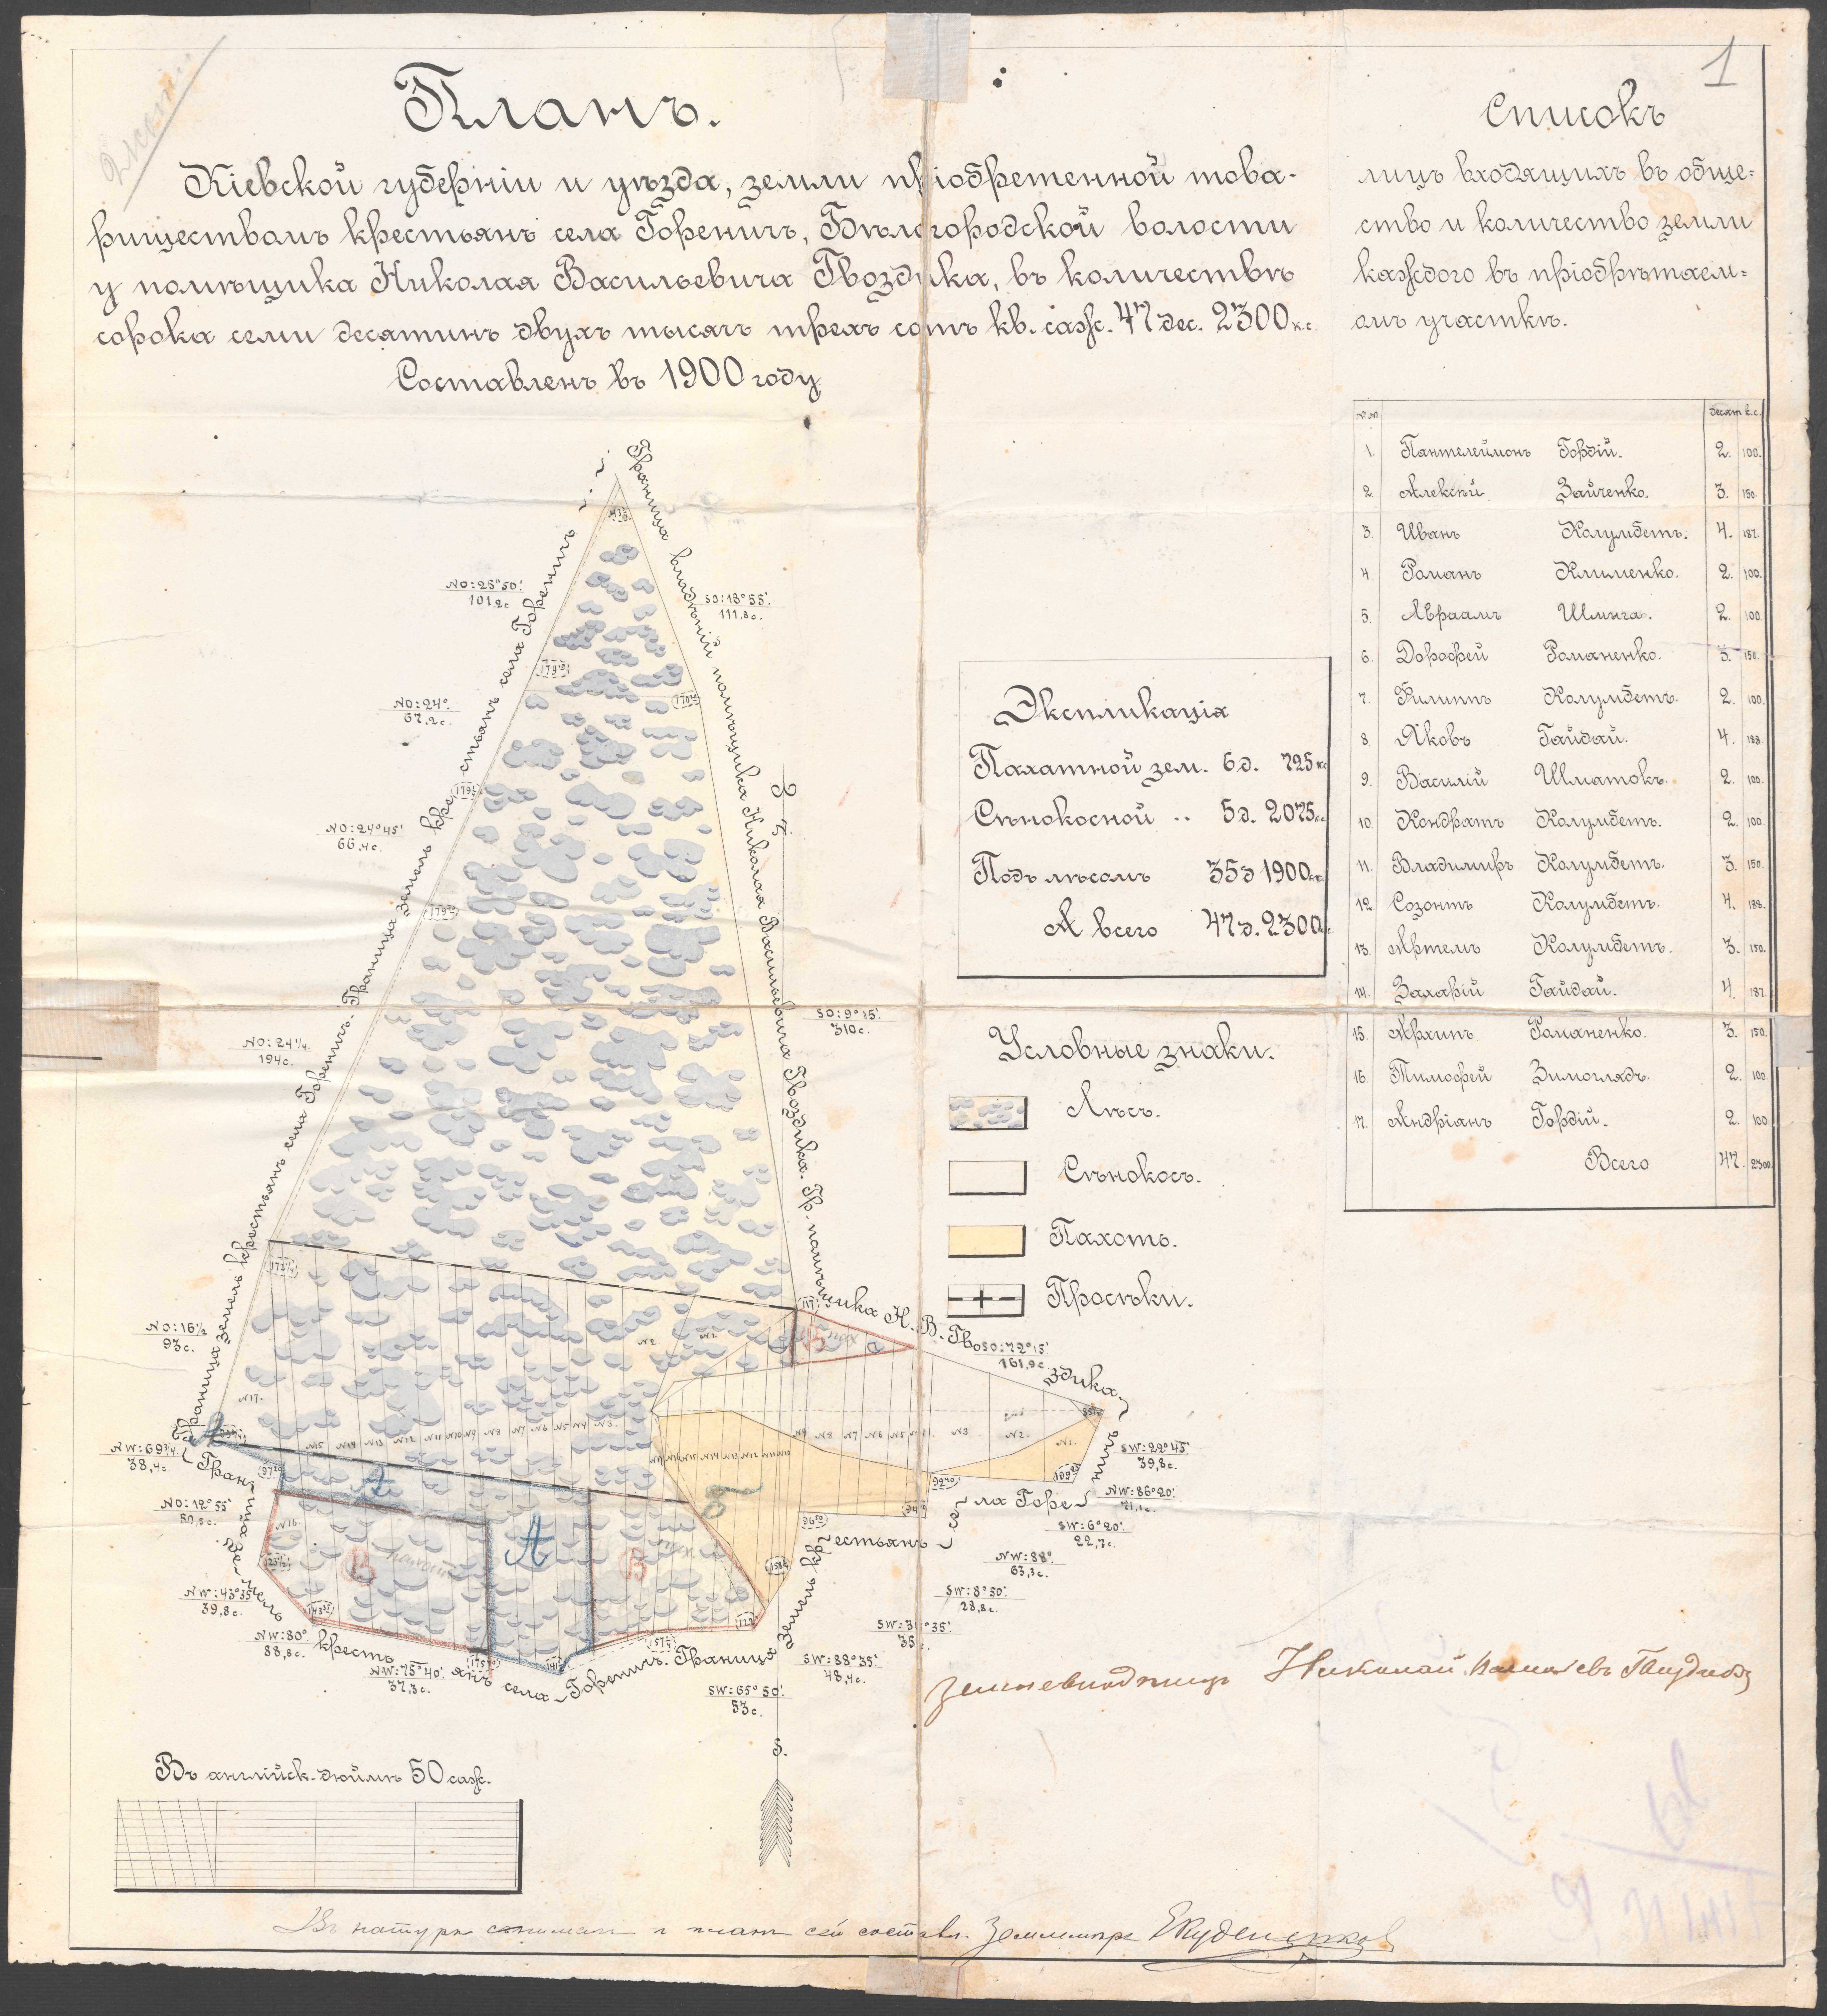 1
Планъ.
Кіевской губерніи и уѣзда, земли пріобретенной това-
риществомъ крестьянъ села Гореничъ, Бѣлогородской волости
у помѣщика Николая Васильевича Гвоздика, въ количествѣ
сорока семи десятинъ двухъ тысячъ трехъ сотъ кв. саж. 47 дес. 2300 к.с.
Составленъ въ 1900 году
Списокъ
лицъ входящихъ въ обще=
ство и количество земли
каждого въ пріобрѣтаем=
омъ участкѣ.
№№ десят к.с.
1. Пантелеймонъ Гордій. 2. 100.
2. Алексѣй Зайченко. 3. 150.
3. Иванъ Колумбетъ. 4. 187.
4. Романъ Клименко. 2. 100.
5. Авраамъ Шлыга. 2. 100.
6. Дорофей Романенко. 3. 150.
7. Филиппъ Колумбетъ. 2. 100.
8. Яковъ Гайдай. 4. 188.
9. Василій Шматокъ. 2. 100.
10. Кондратъ Колумбетъ. 2. 100.
11. Владимиръ Колумбетъ. 3. 150.
12. Созонтъ Колумбетъ. 4. 188.
13. Артемъ Колумбетъ. 3. 150.
14. Захарій Гайдай. 4. 187.
15. Архипъ Романенко. 3. 150.
16. Тимофей Зимоглядъ. 2. 100.
17. Андріанъ Гордій. 2. 100
Всего 47. 2300.
Экспликація
Пахатной зем. 6 д. 725 кс
Сѣнокосной .. 5 д. 2075 кс
Подъ лѣсомъ 35 д 1900 кс.
А всего 47 д. 2300 кс.
Условные знаки.
Лѣсъ.
Сѣнокосъ.
Пахоть.
Просѣки.
Граница владѣній помѣщика Николая Васильевича Гвоздика. Гр. помѣщика Н. В. Гвоздика
Граница земель крестьянъ села Горенич. Граница земель крестьянъ села Гореничъ
Граница земель крестьянъ села Горенич. Граница земель крестьянъ села Гореничъ
NO: 25°50'.
101,2 с
SO: 18°55'.
111,8 с.
NO: 24°.
67,2 с.
NO: 24°45'
66,4 с.
SO: 9°15'.
310 с.
NO: 24 1/4.
194 с.
NO: 16 1/2
93 с.
SO: 72°15'.
161,9 с.
NW: 69 3/4.
38,4 с
SW: 22°45'
39,8 с.
NW: 86°20'.
71,1 с.
NO: 12°55'
SW: 6°20'.
22,7 с.
NW: 88°.
63,3 с.
SW: 8°30'.
28,8 с.
NW: 43°35'
39,8 с.
NW: 80°
88,8 с.
NW: 75°40'.
37,3 с.
SW: 88°35'.
48,4 с.
SW: 65°50'.
53 с.
N17. N15 N14 N13 N12 N11 N10 N9 N8 N7 N6 N5 N4 N3. N2. N1.
N9 N8 N7 N6 N5 N3 N2. N1.
N16
А
А
А
В
В
В
S.
Землевладѣлецъ Николай Васильевъ Гвоздикъ
Въ англійск. дюймѣ 50 саж.
Въ натурѣ снималъ и планъ сей составл. Землемѣръ